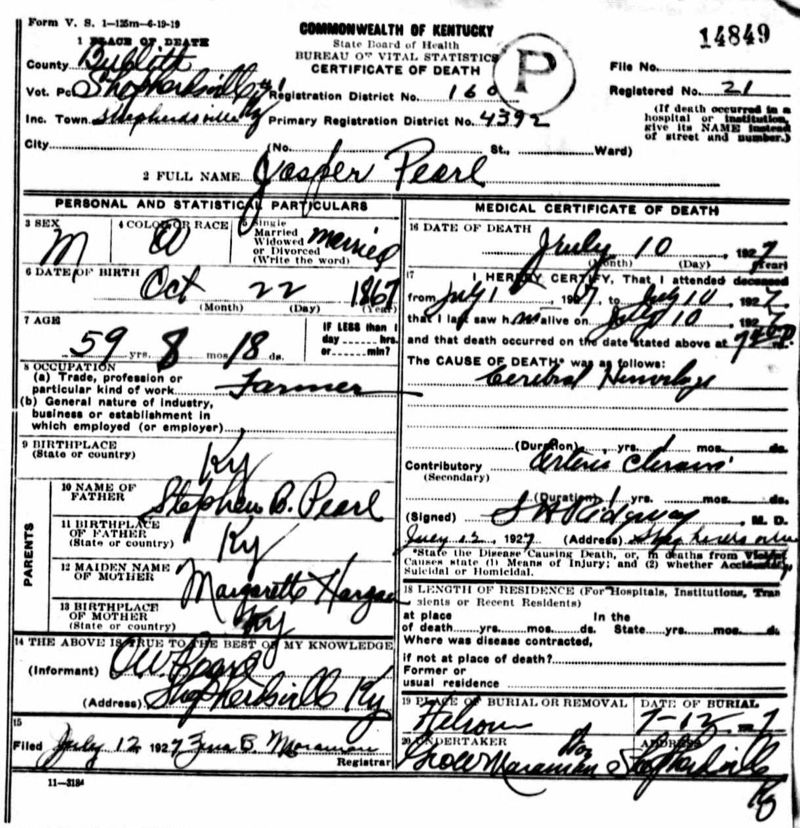 Form V. S. 1—125m—6-19-19
COMMONWEALTH OF KENTUCKY
State Board of Health
BUREAU OF VITAL STATISTICS
CERTIFICATE OF DEATH
P
14849
1 PLACE OF DEATH
County Bullitt
Vot. Pct Shepherdsville #1
Inc. Town Shepherdsville Ky
City
Registration District No. 160
Primary Registration District No. 4392
File No.
Registered No. 21
(If death occurred in a
hospital or institution,
give its NAME instead
of street and number.)
(No. St., Ward)
2 FULL NAME Jasper Pearl
PERSONAL AND STATISTICAL PARTICULARS
3 SEX
M
4 COLOR OR RACE
5 Single
Married
Widowed
or Divorced
(Write the word)
married
6 DATE OF BIRTH
Oct 22 1867
(Month) (Day) (Year)
7 AGE
59 yrs. 8 mos. 18 ds.
IF LESS than 1
day hrs.
or min?
8 OCCUPATION
(a) Trade, profession or
particular kind of work Farmer
(b) General nature of industry,
business or establishment in
which employed (or employer)
9 BIRTHPLACE
(State or country)
Ky
PARENTS
10 NAME OF
FATHER
Stephen B. Pearl
11 BIRTHPLACE
OF FATHER
(State or country)
Ky
12 MAIDEN NAME
OF MOTHER
Margarette Hargan
13 BIRTHPLACE
OF MOTHER
(State or country)
Ky
14 THE ABOVE IS TRUE TO THE BEST OF MY KNOWLEDGE
(Informant) O.W.
(Address) Shepherdsville Ky
15
Filed July 12 1927 Zena B. Maraman
Registrar
11—3184
MEDICAL CERTIFICATE OF DEATH
16 DATE OF DEATH
July 10, 1927
(Month) (Day) (Year)
17
I HEREBY CERTIFY, That I attended deceased
from July 1 1927, to July 10, 1927
that I last saw him alive on July 10, 1927
and that death occurred on the date stated above at
The CAUSE OF DEATH* was as follows:
Cerebral
(Duration) yrs. mos. ds.
Contributory
(Secondary)
(Duration) yrs. mos. ds.
(Signed) S H Ridgway, M. D.
July 12, 1927 (Address)
*State the Disease Causing Death, or, in deaths from Violent
Causes state (1) Means of Injury; and (2) whether Accidental,
Suicidal or Homicidal.
18 LENGTH OF RESIDENCE (For Hospitals, Institutions, Tran
sients or Recent Residents)
at place
of death yrs. mos. ds.
In the
State yrs. mos. ds.
Where was disease contracted,
if not at place of death?
Former or
usual residence
19 PLACE OF BURIAL OR REMOVAL
Hebron
DATE OF BURIAL
7-12-7
20 UNDERTAKER
Maraman
ADDRESS
Shepherdsville
Ky